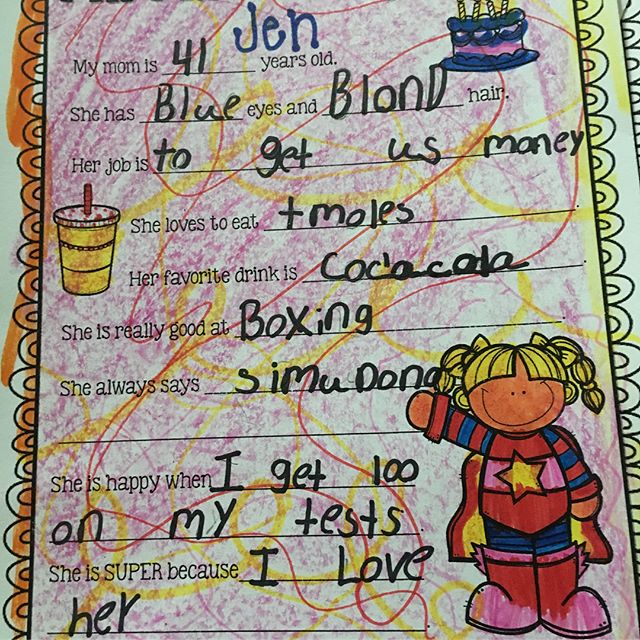 Jen
My mom is 41 years old.
She has Blue eyes and Blond hair.
Her job is to get us money
She loves to eat tmoles
Her favorite drink is Cocacola
She is really good at Boxing
She always says simu Dong
She is happy when I get 100
on my tests.
She is SUPER because I Love
her.